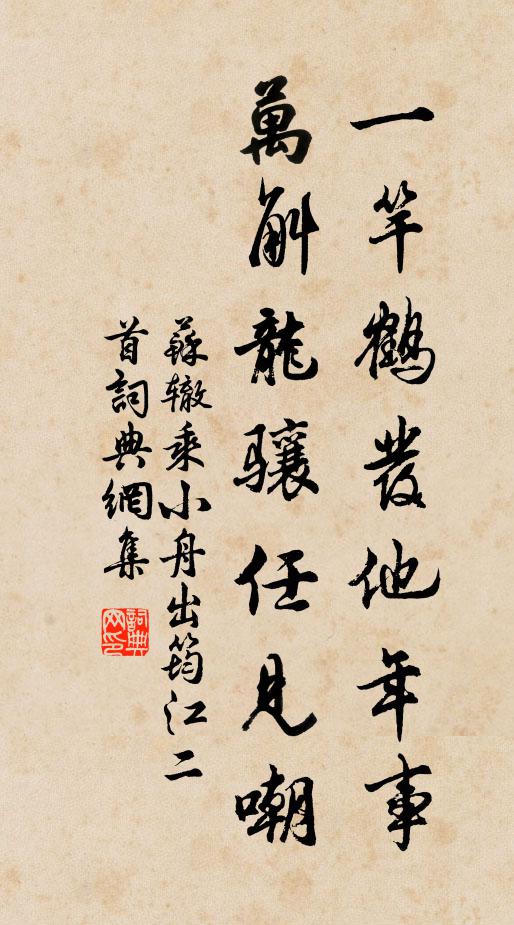 一竿鶴發他年事
萬斛龍驤任見嘲
蘇辙乘小舟出筠江二
首詞典網集
詞典
网印